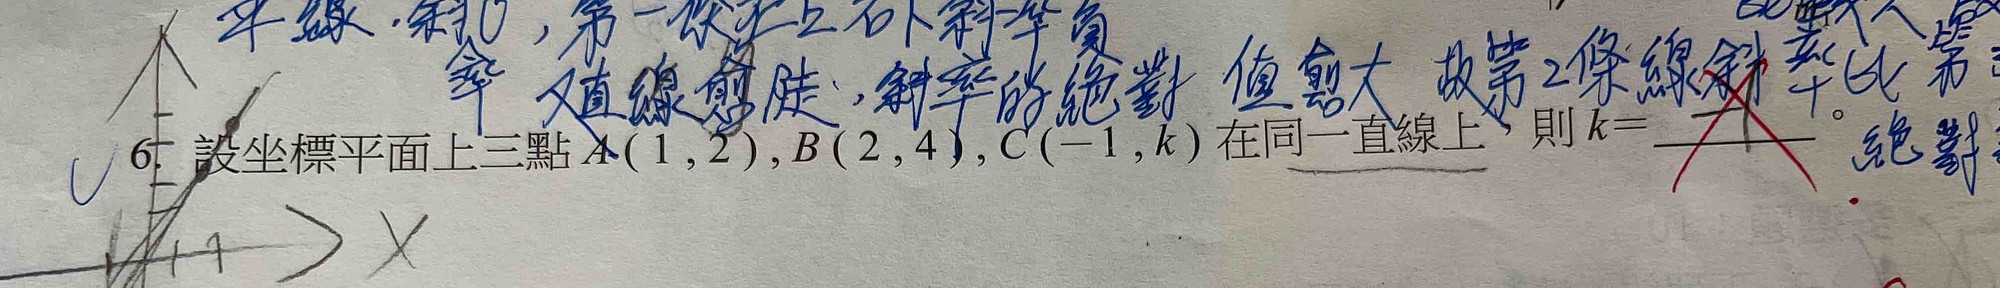 平線.斜，第一條左上右下斜率負
率 又直線愈陡，斜率的絕對值愈大 故第2條線斜率比第
6. 設坐標平面上三點 A ( 1 , 2 ) , B ( 2 , 4 ) , C ( −1 , k ) 在同一直線上，則 k= 。
絕對
X